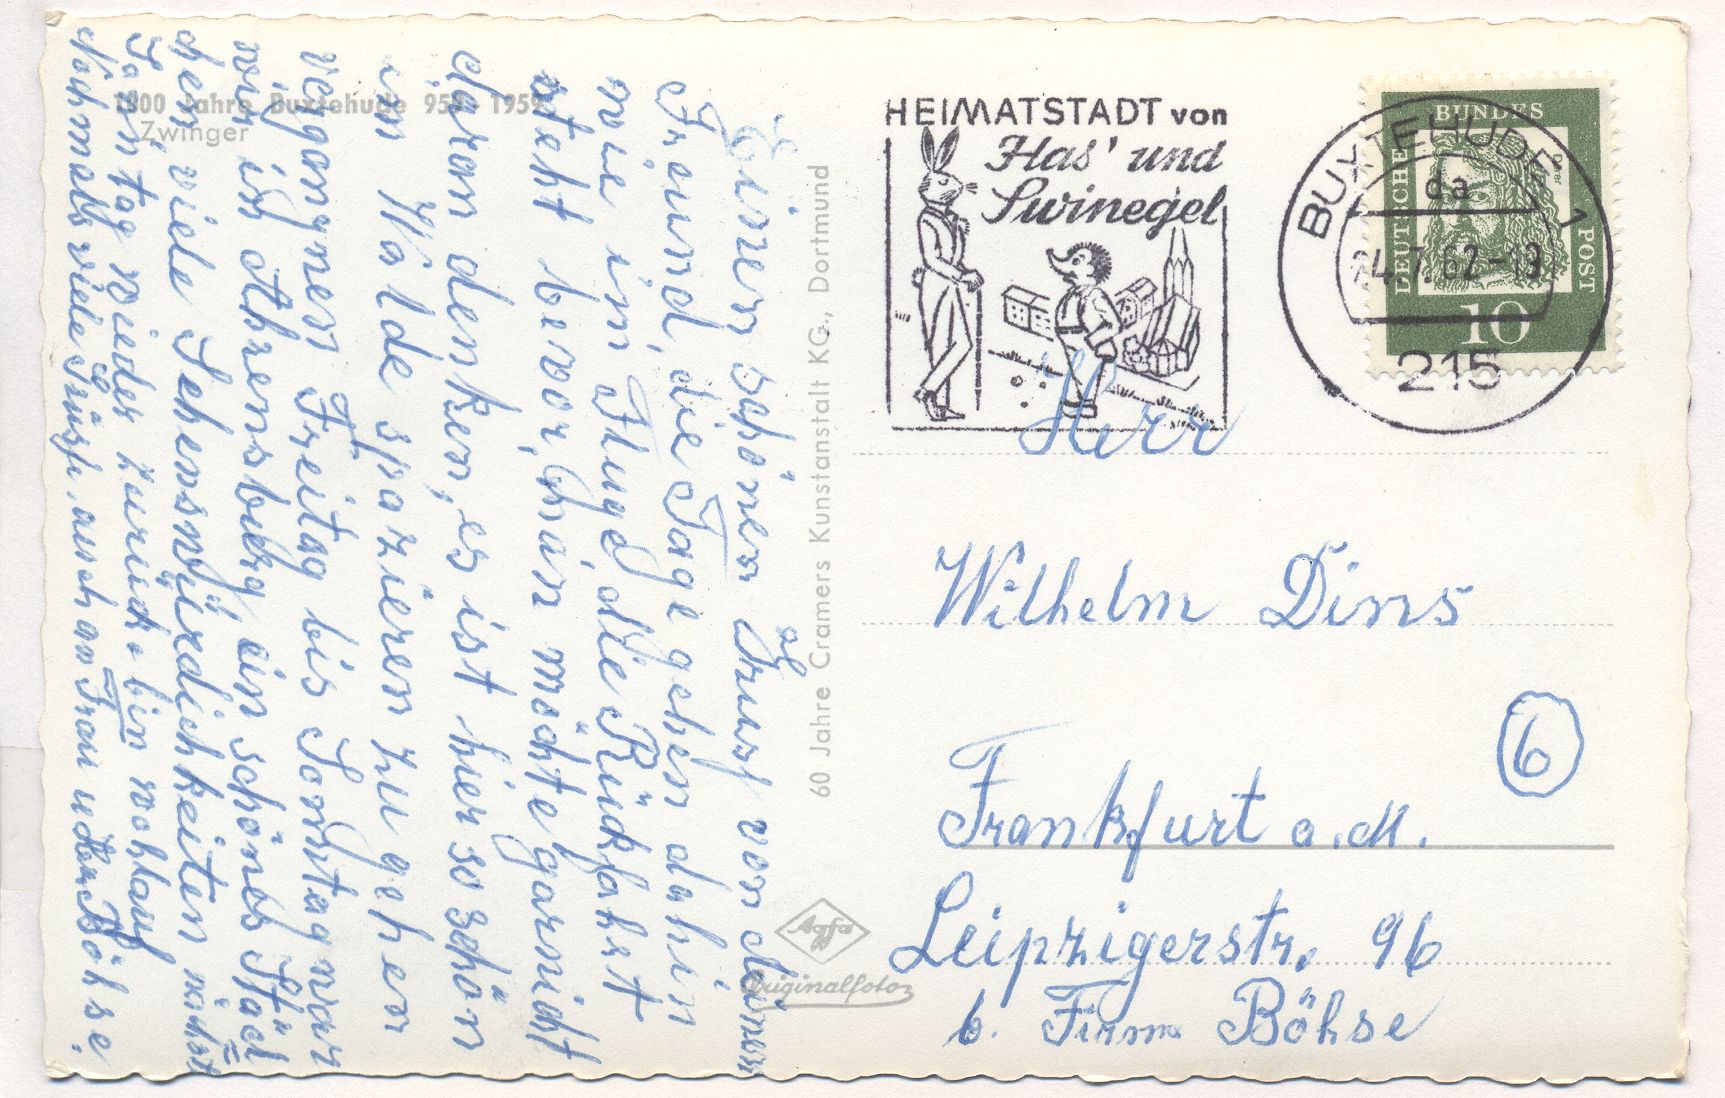 1000 Jahre Buxtehude 959-1959
Zwinger
Einen schönen Gruß von Deinem
Freund, die Tage gehen dahin
wie im Fluge, die Rückfahrt
steht bevor, man möchte garnicht
daran denken, es ist hier so schön
im Walde spazieren zu gehen
vergangnen Freitag bis Sonntag war
wir in Ahrensburg, ein schönes Städt
chen viele Sehenswürdichkeiten nächst
Sonntag wieder zurück bin wohlauf
Nochmals viele Grüße, auch an Frau u Herr Böhse.
60 Jahre Cramers Kunstanstalt KG., Dortmund
Agfa
Originalfoto
HEIMATSTADT von
Has' und
Swinegel
BUXTEHUDE 1
da
24.7.62-19
215
DEUTSCHE
BUNDES
POST
Dürer
10
Herr
Wilhelm Dins
6
Frankfurt a.M.
Leipzigerstr. 96
b. Firma Böhse